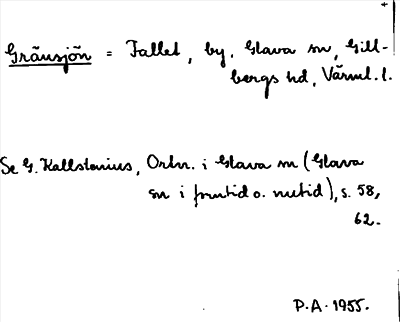 Gränsjön = Fallet, by. Glava sn, Gill-
bergs hd, Värml. l.
Se G. Kallstenius, Ortn. i Glava sn (Glava
sn i forntid o. nutid), s. 58,
62.
P.A. 1955.